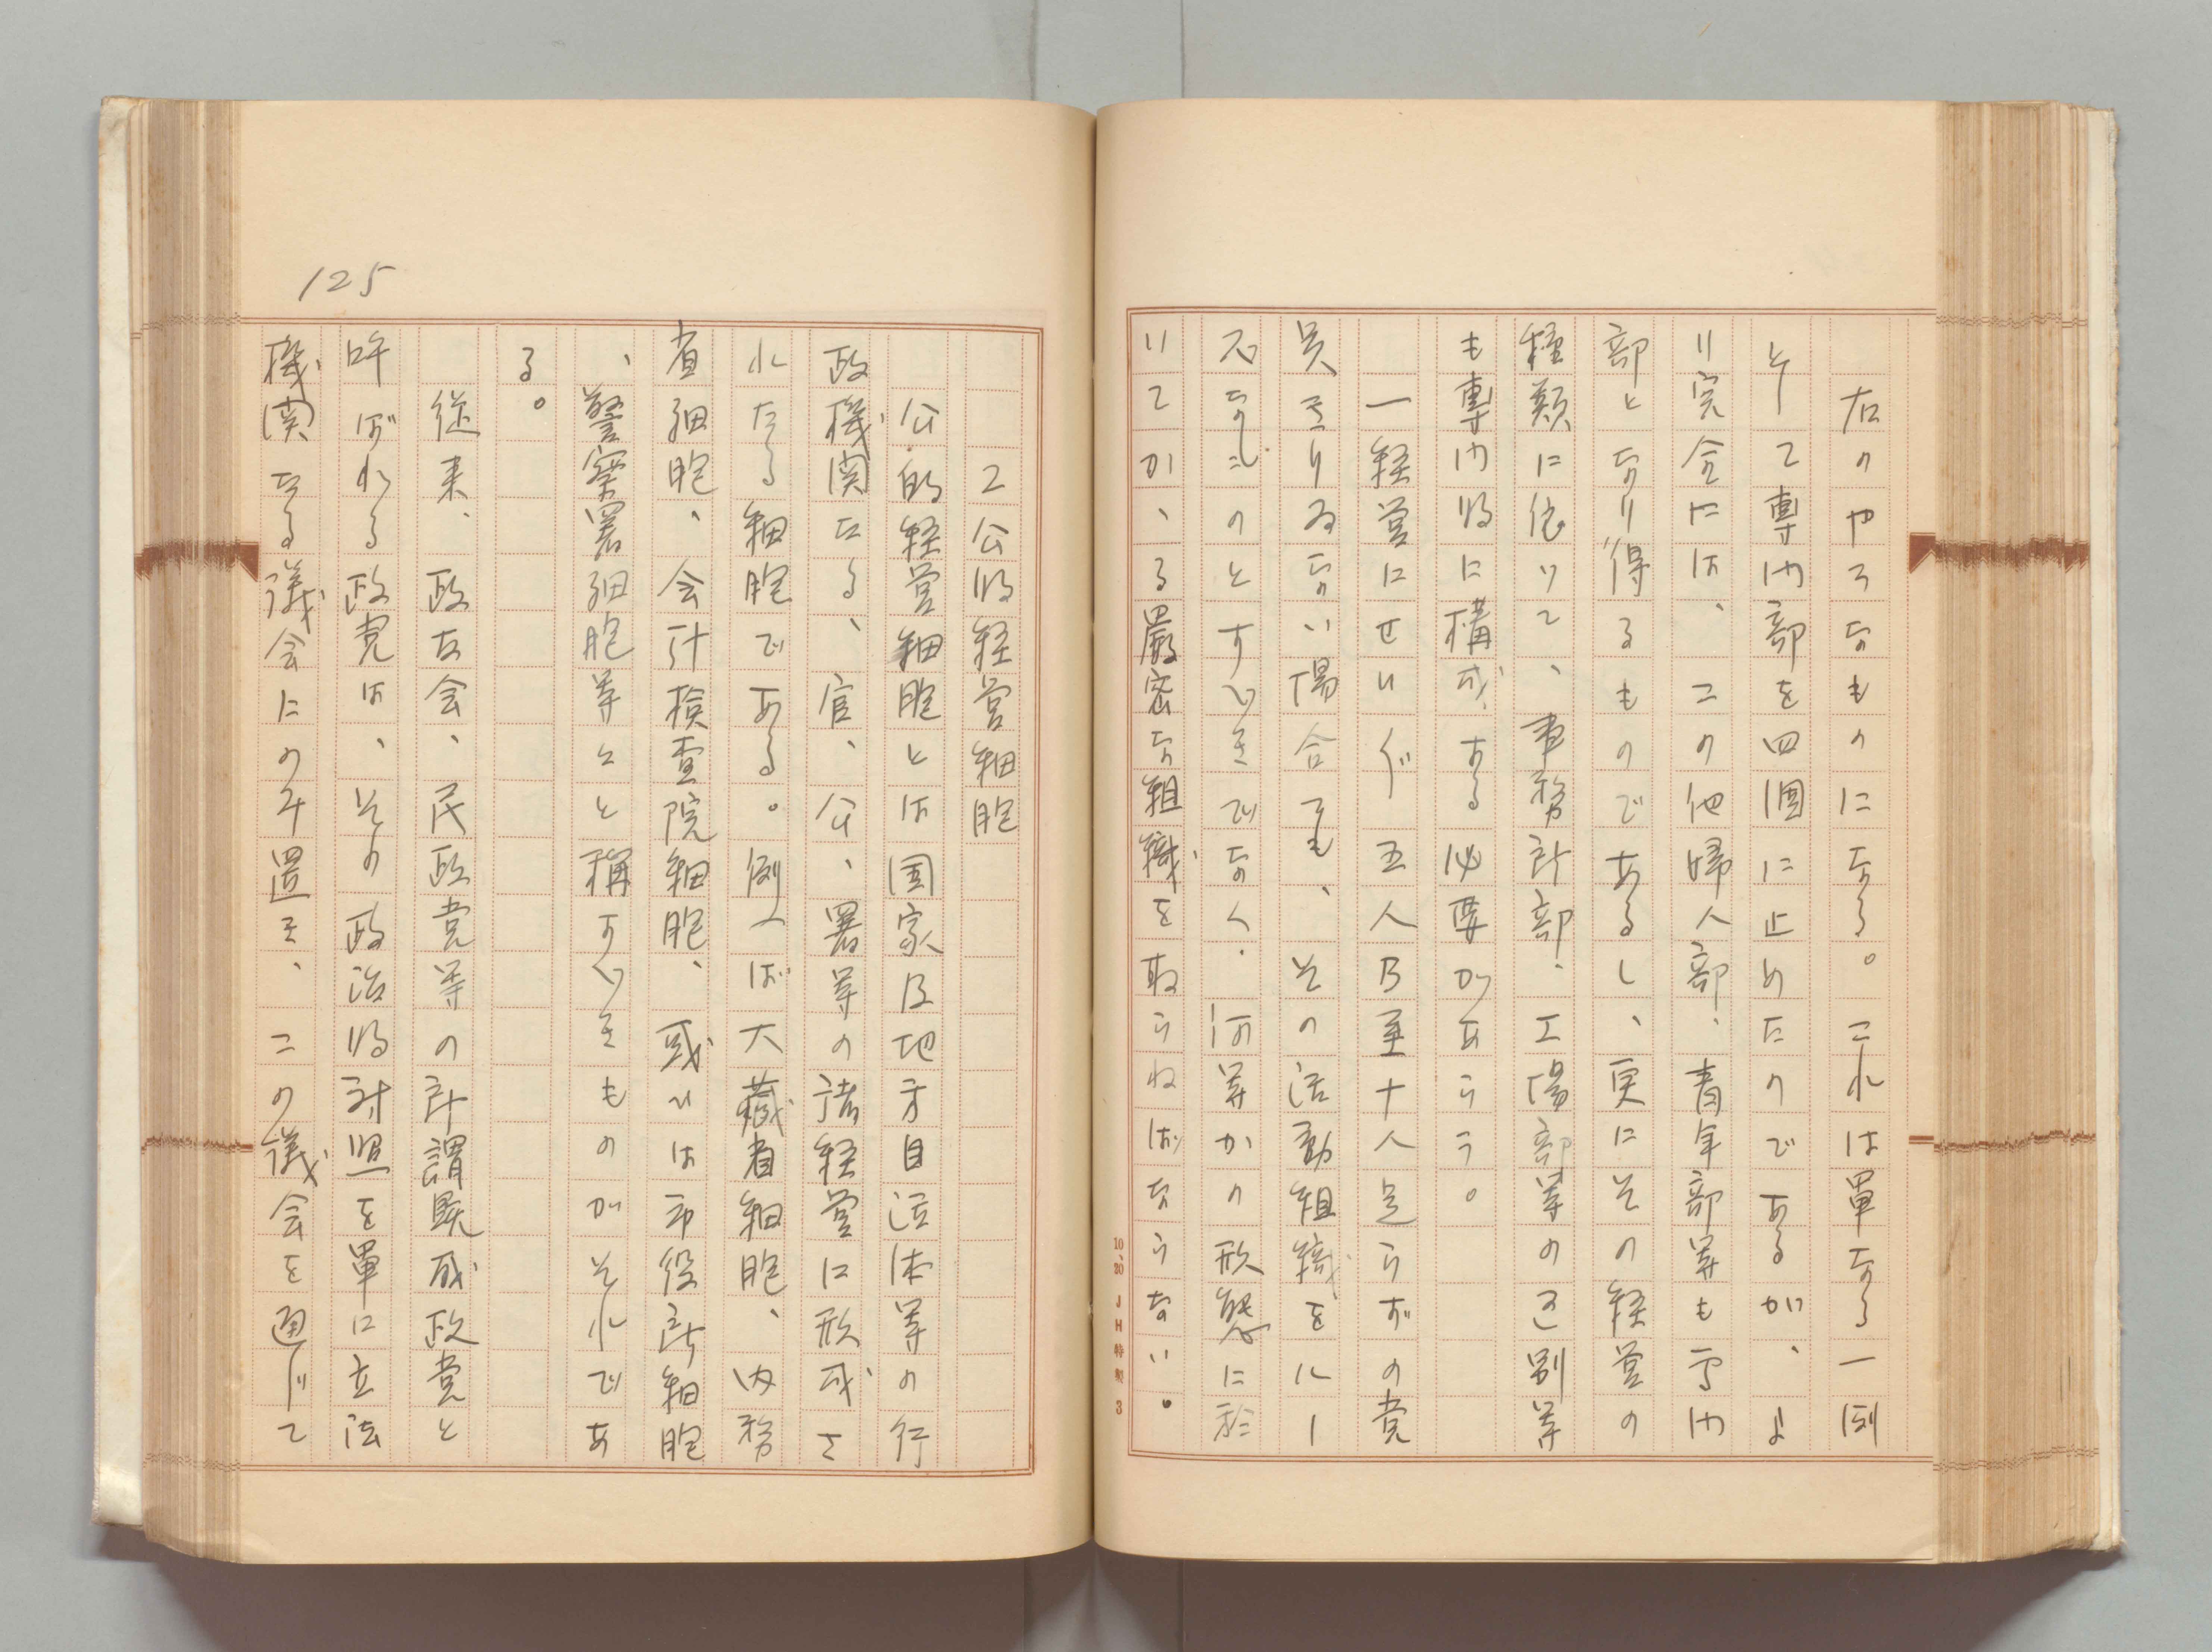 右のやうなものになる。これは単なる一例
として専門部を四個に止めたのであるが、よ
り完全には、この他婦人部、青年部等も専門
部となり得るものであるし、更にその経営の
種類に依りて、事務所部、工場部等の区別等
も専門的に構成する必要があらう。
一経営にせいぜい五人乃至十人足らずの党
員きりゐない場合でも、その活動組織をハー
なものとすべきでなく、何等かの形態に於
いてかゝる厳密な組織を取らねばならない。
10 20 JH特製 3
125
2公的経営細胞
公的経営細胞とは国家及地方自治体等の行
政機関たる、官、公、署等の諸経営に形成さ
れたる細胞である。例へば大蔵省細胞、内務
省細胞、会計検査院細胞、或ひは市役所細胞
、警察署細胞等とと称すべきものがそれであ
る。
従来、政友会、民政党等の所謂既成政党と
呼ばれる政党は、その政治的対照を単に立法
機関なる議会にのみ置き、この議会を通じて